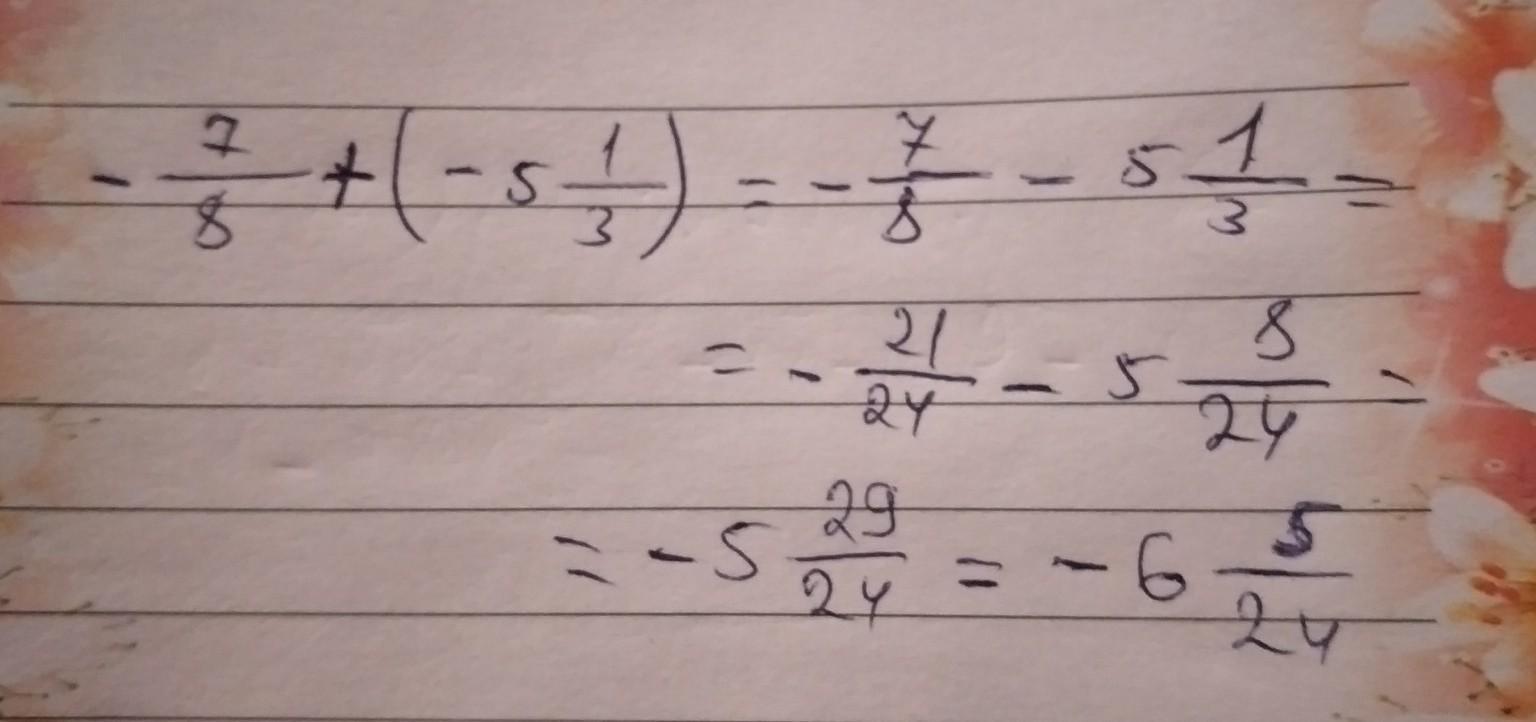 - 7/8 + (- 5 1/3) = - 7/8 - 5 1/3 =
= - 21/24 - 5 8/24 =
= - 5 29/24 = - 6 5/24